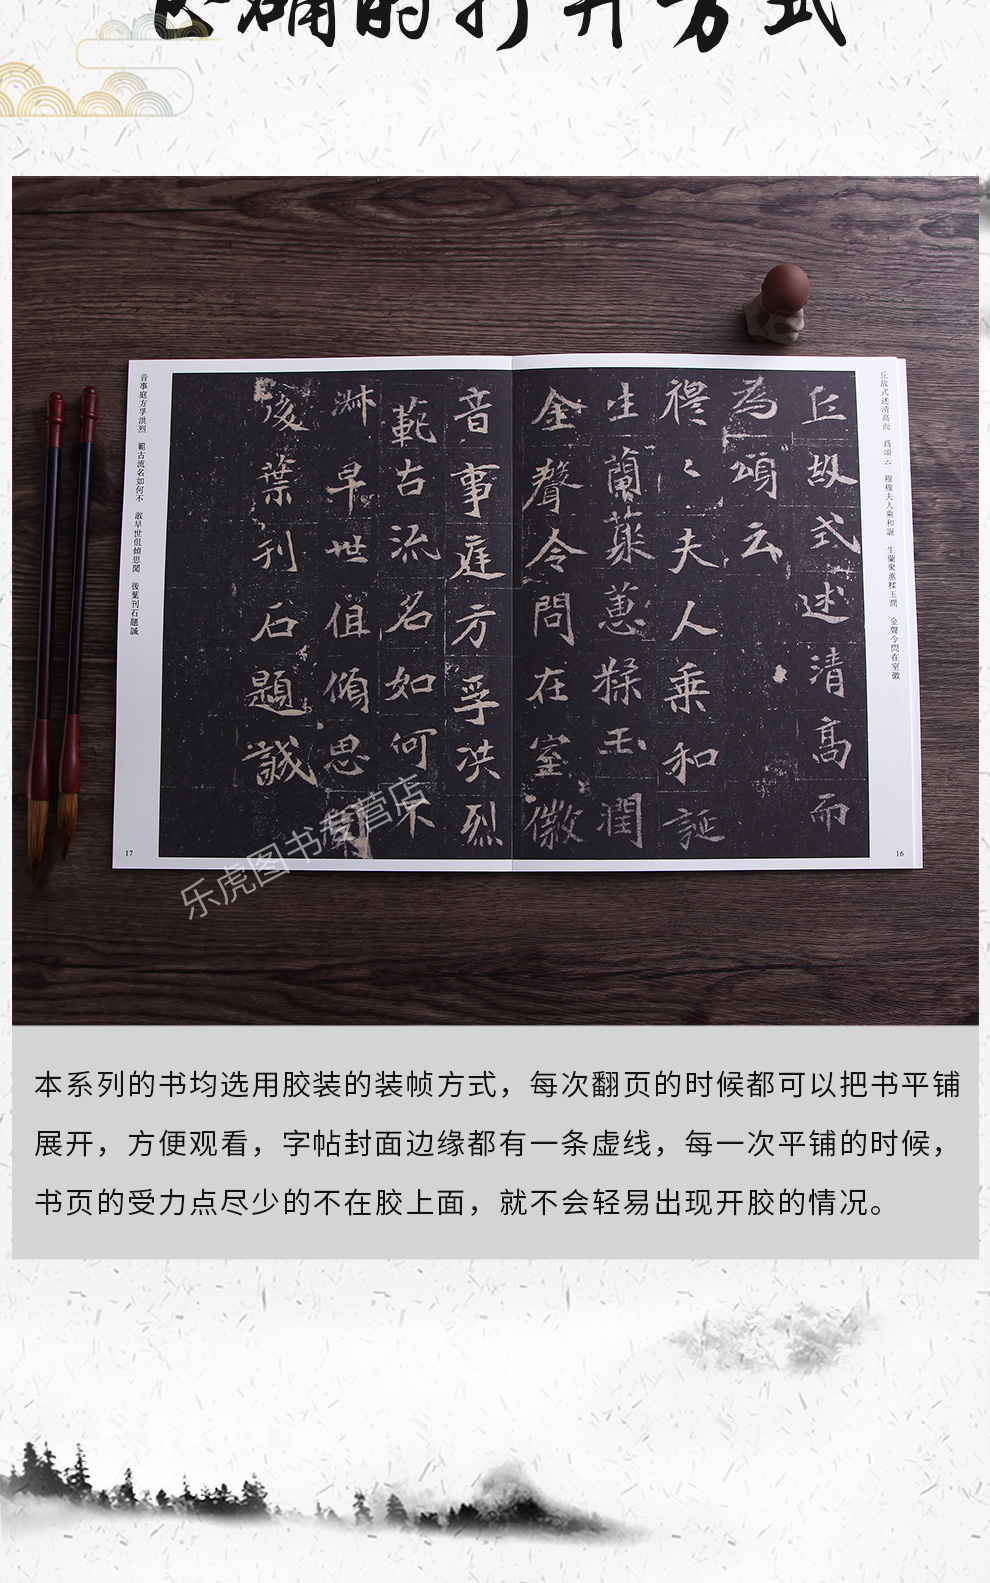 正确的打开方式
丘故式述清高而 爲頌云 穆穆夫人乘和誕 生蘭聚蕙糅玉潤 金聲令問在室徽
丘故式述清高而
為頌云
穆〻夫人乘和誕
生蘭蕙糅玉潤
金聲令問在室徽
音事庭方孚洪烈
範古流名如何不
淋早世徂傾思閒
後葉刊石題誠
音事庭方孚洪烈 範古流名如何不 淑早世徂傾思閒 後葉刊石題誠
17
16
乐虎图书专营店
本系列的书均选用胶装的装帧方式，每次翻页的时候都可以把书平铺
展开，方便观看，字帖封面边缘都有一条虚线，每一次平铺的时候，
书页的受力点尽少的不在胶上面，就不会轻易出现开胶的情况。